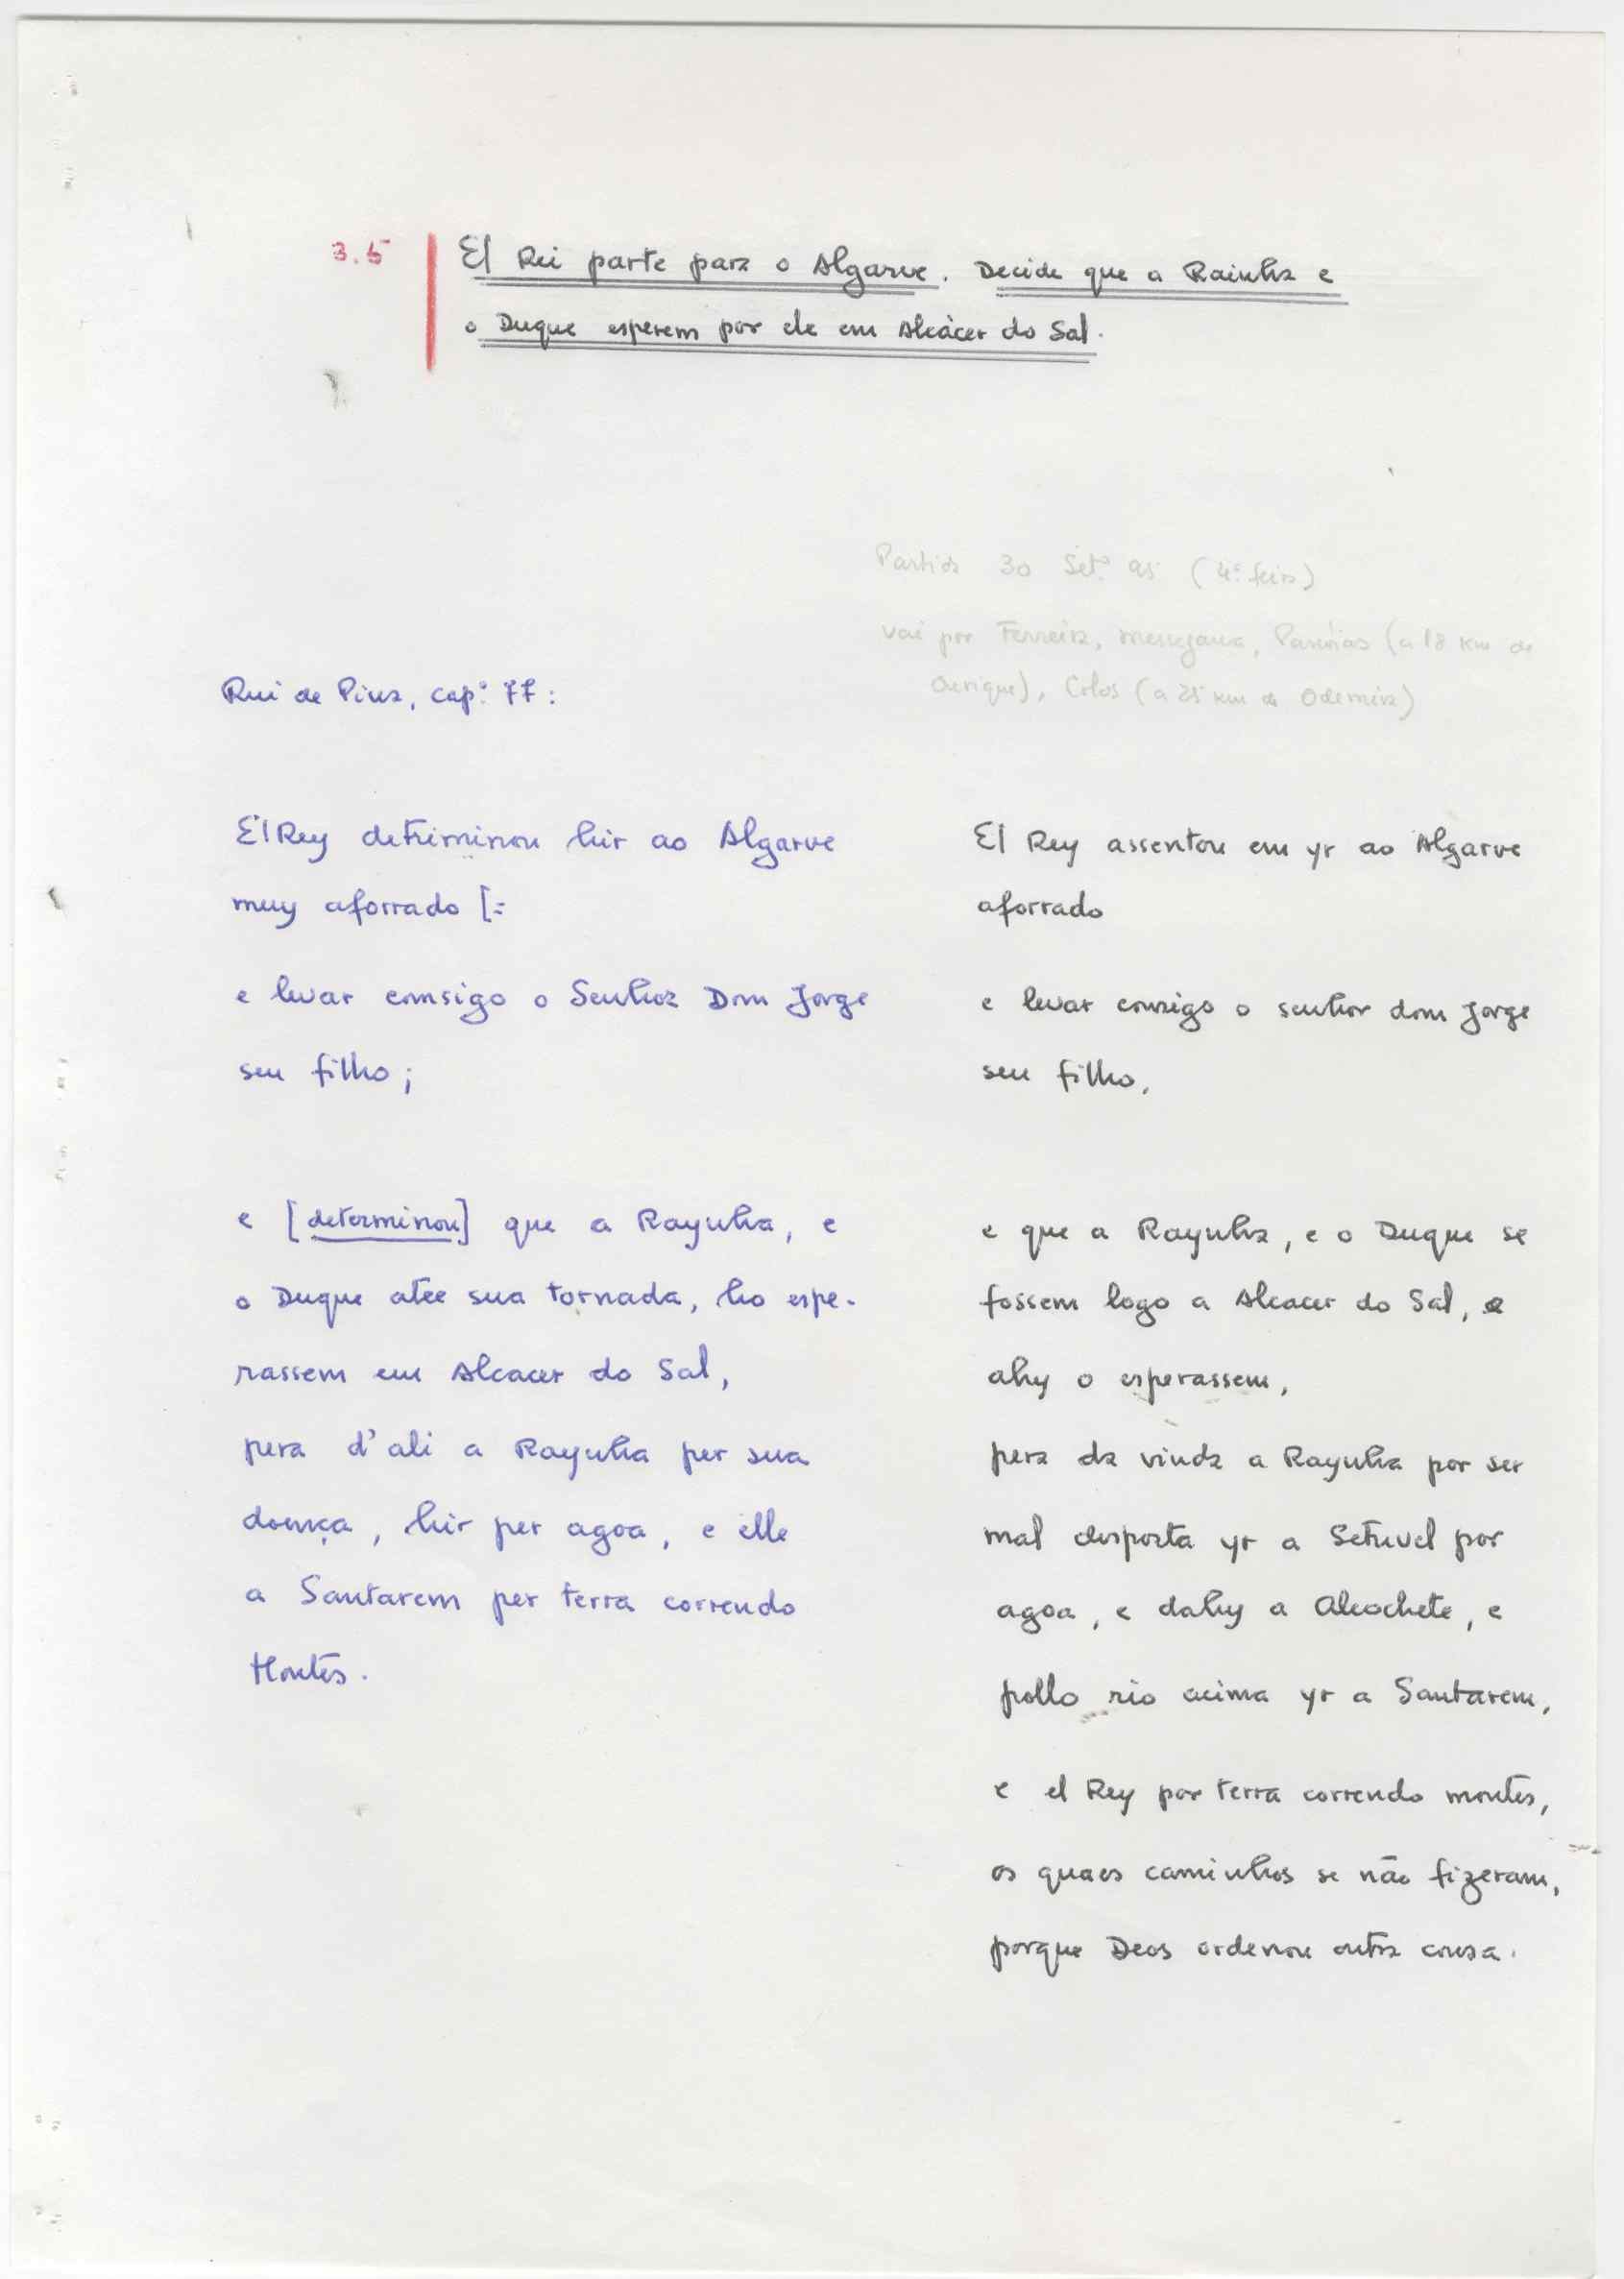 3.5
El Rei parte para o Algarve. Decide que a Rainha e
o Duque esperem por ele em Alcácer do Sal.
Partida 30 Set.º 95 (4ª feira)
vai por Ferreira, Messejana, Panóias (a 18 km de
Ourique), Colos (a 25 km de Odemira)
Rui de Pina, cap.º 77:
El Rey detriminou hir ao Algarve
muy aforrado [=
e levar comsigo o Senhor Dom Jorge
seu filho;
e [determinou] que a Raynha, e
o Duque atee sua tornada, ho espe-
rassem em Alcacer do Sal,
pera d'ali a Raynha per sua
doença, hir per agoa, e elle
a Santarem per terra correndo
Montes.
El Rey assentou em yr ao Algarve
aforrado
e levar consigo o senhor dom Jorge
seu filho,
e que a Raynha, e o Duque se
fossem logo a Alcacer do Sal, e
ahy o esperassem,
pera da vinda a Raynha por ser
mal desposta yr a Setuvel por
agoa, e dahy a Alcochete, e
pollo rio acima yr a Santarem,
e el Rey por terra correndo montes,
os quaes caminhos se não fizeram,
porque Deos ordenou outra cousa.